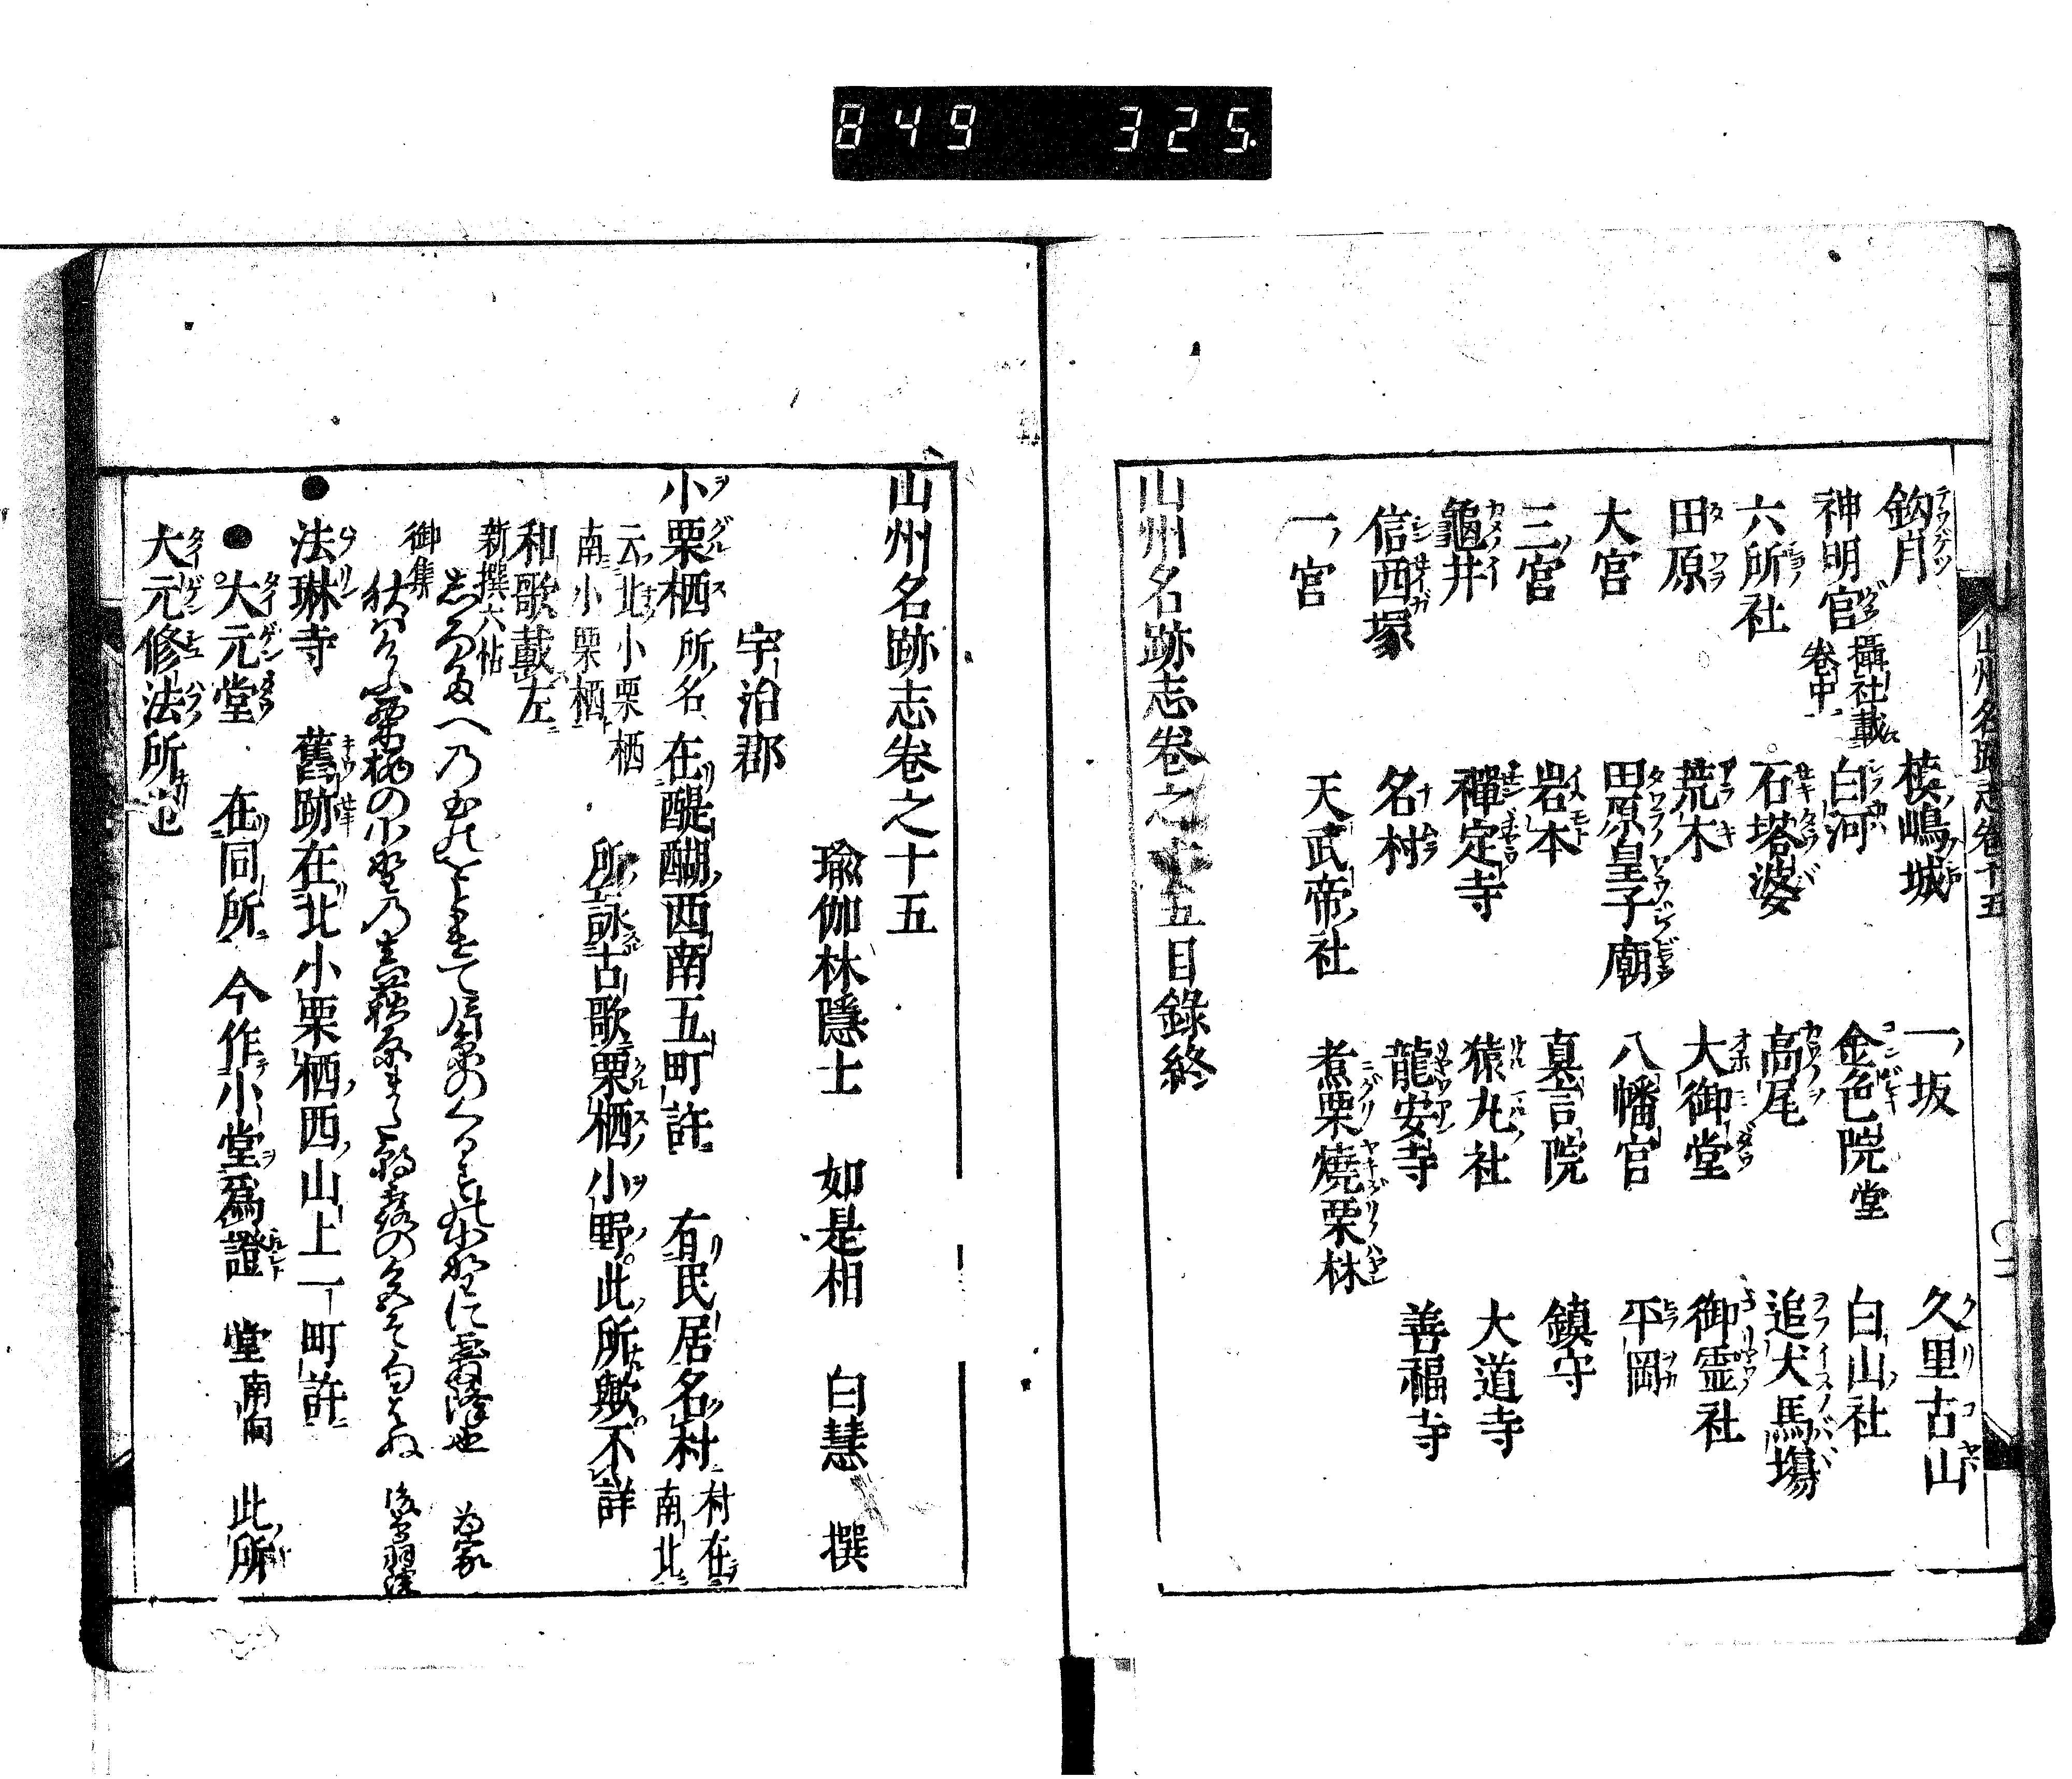 849 325
山州名跡志卷十五
鈎月 槙嶋城 一坂 久里古山
神明宮 攝社載卷中 白河 金色院堂 白山社
六所社 石塔婆 高尾 追犬馬場
田原 荒木 大御堂 御霊社
大宮 田原皇子廟 八幡宮 平岡
三宮 岩本 真言院 鎮守
龜井 禪定寺 猿丸社 大道寺
信西塚 名村 龍安寺 善福寺
一宮 天武帝社 煮栗燒栗林
山州名跡志卷之十五目錄終
山州名跡志卷之十五
瑜伽林隱士 如是相 白慧 撰
宇治郡
小栗栖 所名 在醍醐西南五町許 有民居名村 村在南北
云北小栗栖南小栗栖 所詠古歌栗栖小野此所歟不詳
和歌載左
新撰六帖
為家
御集
秋はけふ栗栖の小野乃真萩原また朝露の色そ匂はぬ 後鳥羽院
●法琳寺 舊跡在北小栗栖西山上一町許
●大元堂 在同所 今作小堂爲證 堂南向 此所
大元修法所也